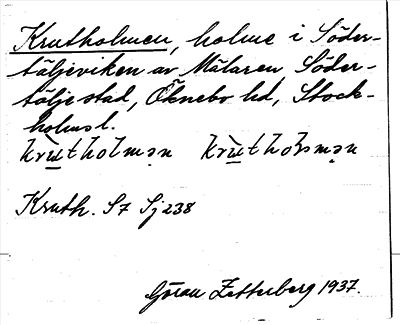 Krutholmen, holme i Söder-
täljeviken av Mälaren, Söder-
tälje stad, Öknebo hd, Stock-
holmsl.
krùtholmən krùthoɭmən
Kruth. S7 Sj 238
Göran Zetterberg 1937